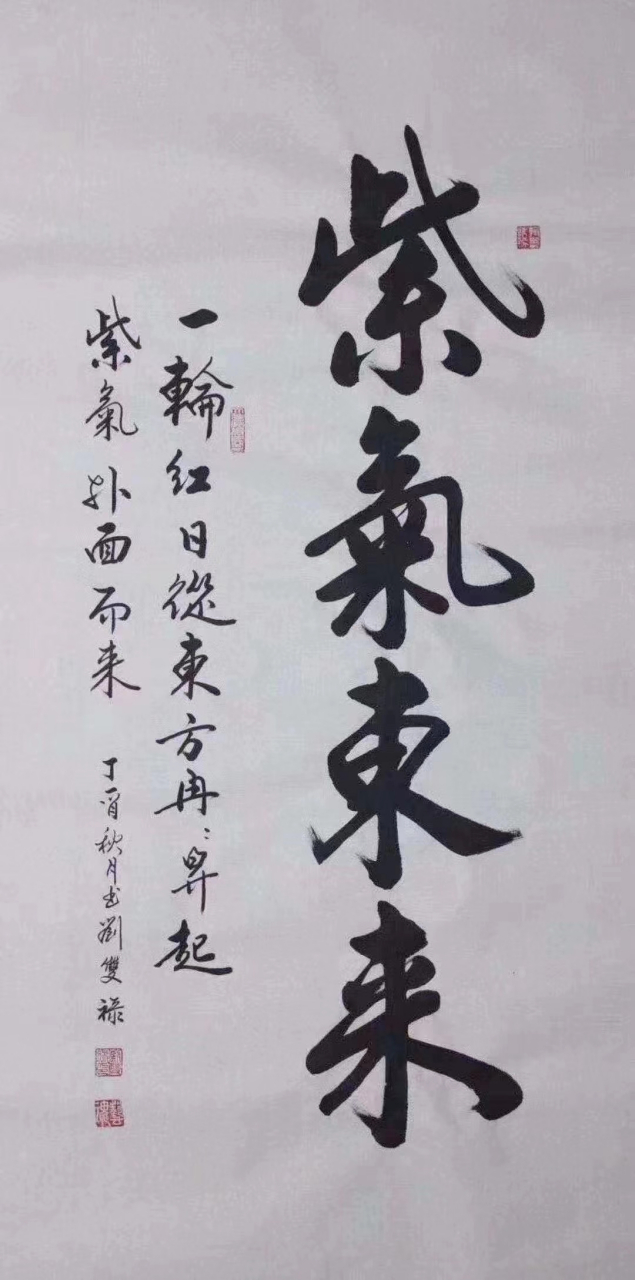 紫氣東来
一輪紅日從東方冉〻昇起
紫氣扑面而来
丁酉秋月书劉雙禄